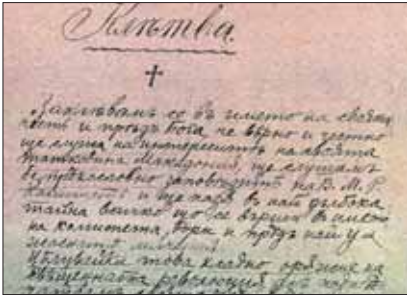 Клѣтва.
Заклѣвамъ се въ името на своята
честь и прѣдъ Бога, че вѣрно и честно
ще служа на интереситѣ на своята
татковина Македония, ще слушамъ
безпрѣкословно заповѣдитѣ на В. М. Р.
и ще пазя въ най дълбока
тайна всичко що се върши въ името
на комитета, дори и прѣдъ най
Цѣлувайки това хладно оръжие на
революция